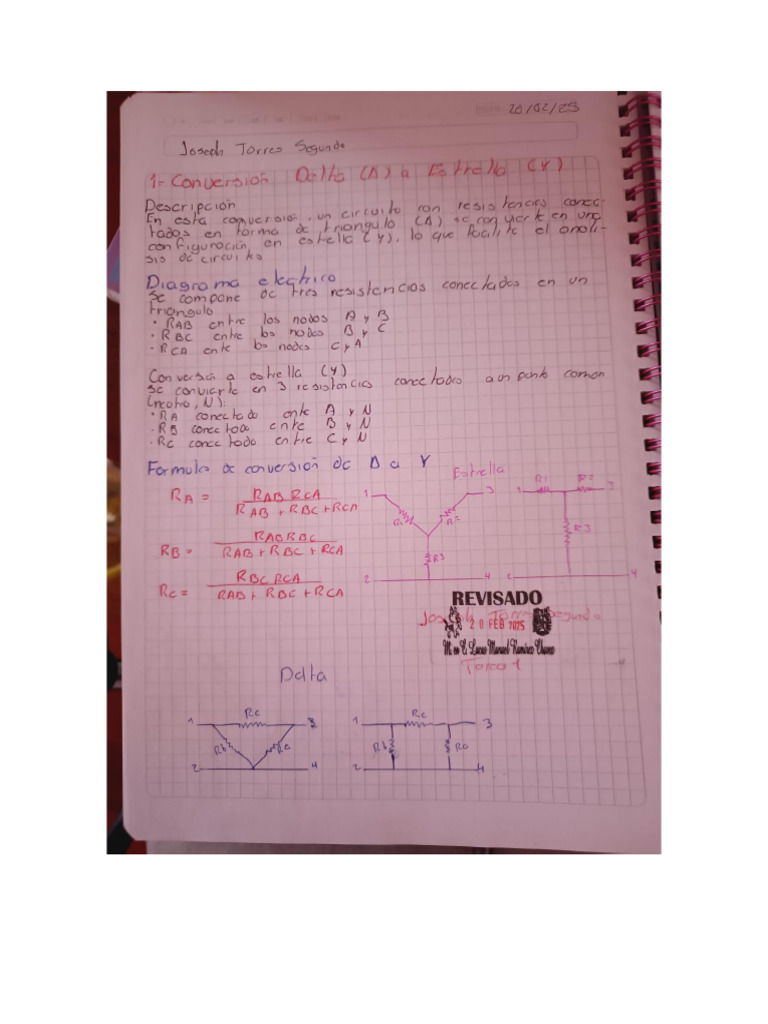 20/02/25
Joseph Torres Segundo
1- Conversión Delta (Δ) a Estrella (Y)
Descripción
En esta conversión, un circuito con resistencias conec
tados en forma de triangulo (Δ) se convierte en una
configuración en estrella (Y), lo que facilite el análi-
sis de circuito
Diagrama electrico
Se compone de tres resistencias conectados en un
triangulo
• RAB entre los nodos A y B
• RBC entre los nodos B y C
• RCA ente los nodos C y A
Conversá a estrella (Y)
Se convierte en 3 resistencias conectados a un punto comon
(neotro, N):
• RA conectado ente A y N
• RB conectado ente B y N
• RC conectado entre C y N
Formulas de conversión de Δ a Y
Estrella
RA = RAB RCA / RAB + RBC + RCA
1 3 R1 R2
1 R1 R2 3
R3 R3
2 4 2 4
RB = RAB RBC / RAB + RBC + RCA
RC = RBC RCA / RAB + RBC + RCA
REVISADO
Joseph Torres Segundo
20 FEB 2025
M. en C. Lucas Manuel Ramírez Chávez
Tarea 1
Delta
1 Rc 3
Rb Ra
2 4
1 Rc 3
Rb Ra
2 4